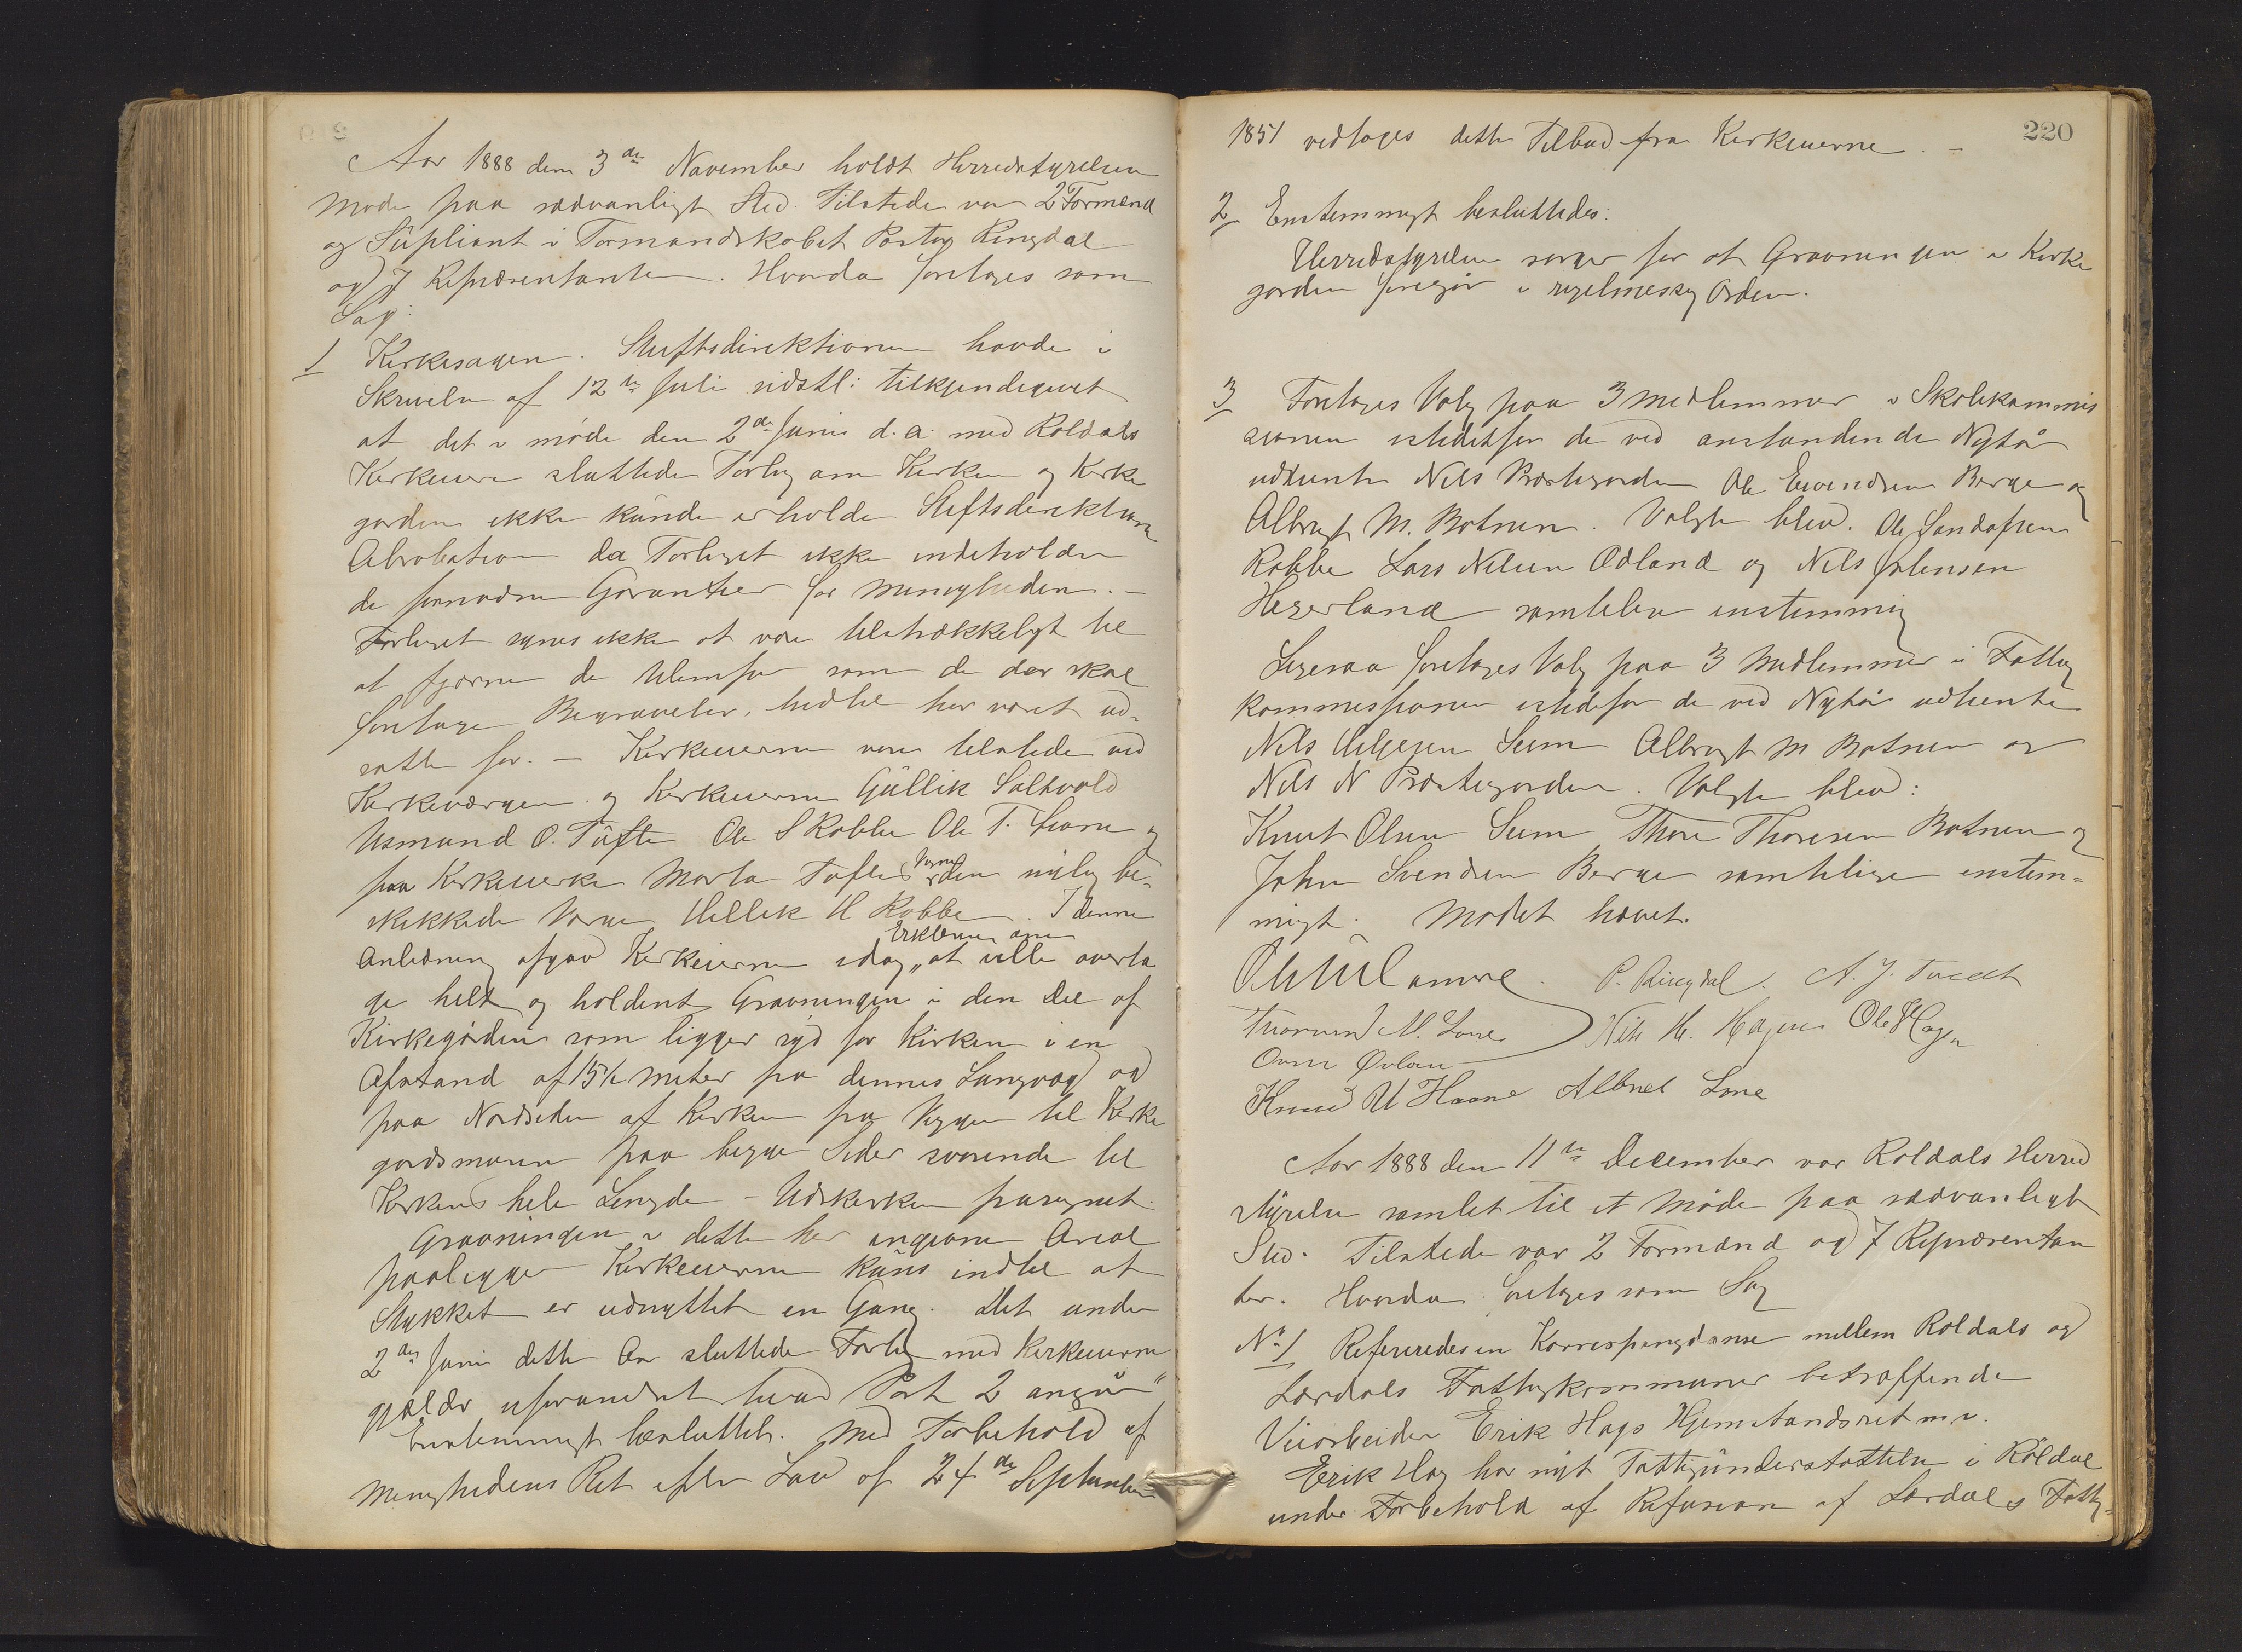 Aar 1888 den 3de November holdt Herredstyrelsen
Møde paa sædvanligt Sted. Tilstede var 2 Formænd
og Supliant i Formandskabet Pastor Ringdal
og 7 Repræsentanter. Hvorda foretoges som
Sag:
1 Kirkesagen. Stiftsdirektionen havde i
Skrivelse af 12te Juli sidstl: tilkjendegivet
at det i møde den 2den Juni d.a. med Røldals
Kirkeeiere sluttede Forlig om Kirken og Kirke
gorden ikke kunde erholde Stiftsdirektionens
Abrobation da Forliget ikke indeholder
de fornødne Garantier for Menigheden. –
Forliget synes ikke at være tilstrækkeligt til
at fjerne de Ulemper som de der skal
foretage Begravelser, hidtil har været ud-
satte for. – Kirkeeierne vare tilstede ved
Kirkeværgen og Kirkeeierne Gullik Saltvold
Asmund O. Tufte Ole S Rabbe Ole T. og
paa Kirkeeierske Marta Tufte's Vegne den midl. be-
skikkede Værge Hellik H Rabbe. I denne
Anledning afgav Kirkeeierne idag Erklæring om „at ville overta
ge helt og holdent Gravningen i den Del af
Kirkegården som ligger syd for Kirken i en
Afstand af 15½ meter fra dennes Langvæg og
paa Nordsiden af Kirken fra Væggen til Kirke
gordsmuren paa begge Sider svarende til
Kirkens hele Længde – Udskirken fraregnet.
Gravningen i dette her angivne Areal
paaligger Kirkeeierne kuns indtil at
Stykket er udnyttet en Gang. Det under
2den Juni dette Aar sluttede Forlig med Kirkeeierne
gjælder uforandret hvad Post 2 angår"
Enstemmigt besluttet. Med Forbehold af
Menighedens Ret efter Lov af 24de September
220
1851 vedtoges dette Tilbud fra Kirkeeierne. –
2 Enstemmigt besluttedes:
Herredstyrelsen sørger for at Gravningen i Kirke
gorden foregår i regelmessig Orden.
3 Foretoges Valg paa 3 Medlemmer i Skolekommis
sionen istedetfor de ved anstundende Nytår
udtrente Nils Prestegorden Ole Eivendsen Berge og
Albregt M. Botnen. Valgte blev. Ole
Rabbe Lars Nilsen Odland og Nils Johnsen
Hegerland samtlige enstemmig
Ligesaa foretoges Valg paa 3 Medlemmer i Fattig
kommissionen istedefor de ved Nytår udtrente
Nils Helgesen Seim Albregt M Botnen og
Nils N Præstegorden. Valgte blev:
Knut Olsen Seim Thore Thoresen Botnen og
John Svendsen Berge samtlige enstem=
migt. Mødet hævet.
P. Ringdal. A. J. Tveit
M. Lone Nils H. Hagen Ole Hagen
Knud Albret Lone
Aar 1888 den 11te December var Røldals Herred
styrelse samlet til et Møde paa sædvanligt
Sted. Tilstede var 2 Formænd og 7 Repræsentan
ter. Hvorda foretoges som Sag
No 1 Refereredes en Korrespongdanse mellem Røldals og
Lærdals Fattigkommuner betræffende
Veiarbeider Erik Hags Hjemstandsret m.v.
Erik Hag har nyt Fattigunderstøttelse i Røldal
under Forbehold af Refusion af Lærdals Fattig=